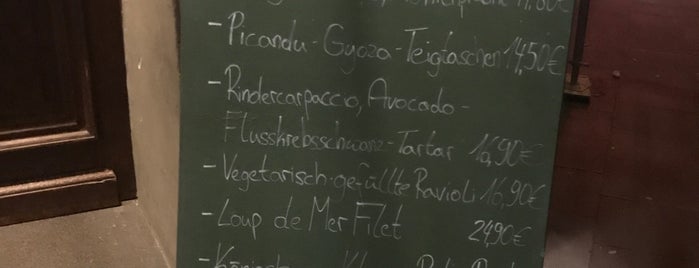 - Picandu-Gyoza-Teigtaschen 14,50€
- Rindercarpaccio, Avocado-
Flusskrebsschwanz-Tartar 16,90€
- Vegetarisch-gefüllte Ravioli 16,90€
- Loup de Mer Filet 24,90€